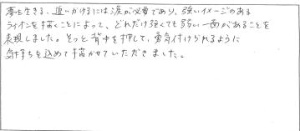 生きる、追いかけるには涙が必要であり、強いイメージのある
ライオンを描くことによって、どれだけ強くても弱い一面があることを
表現しました。そっと背中を押して、勇気付けられるように
気持ちを込めて描かせていただきました。